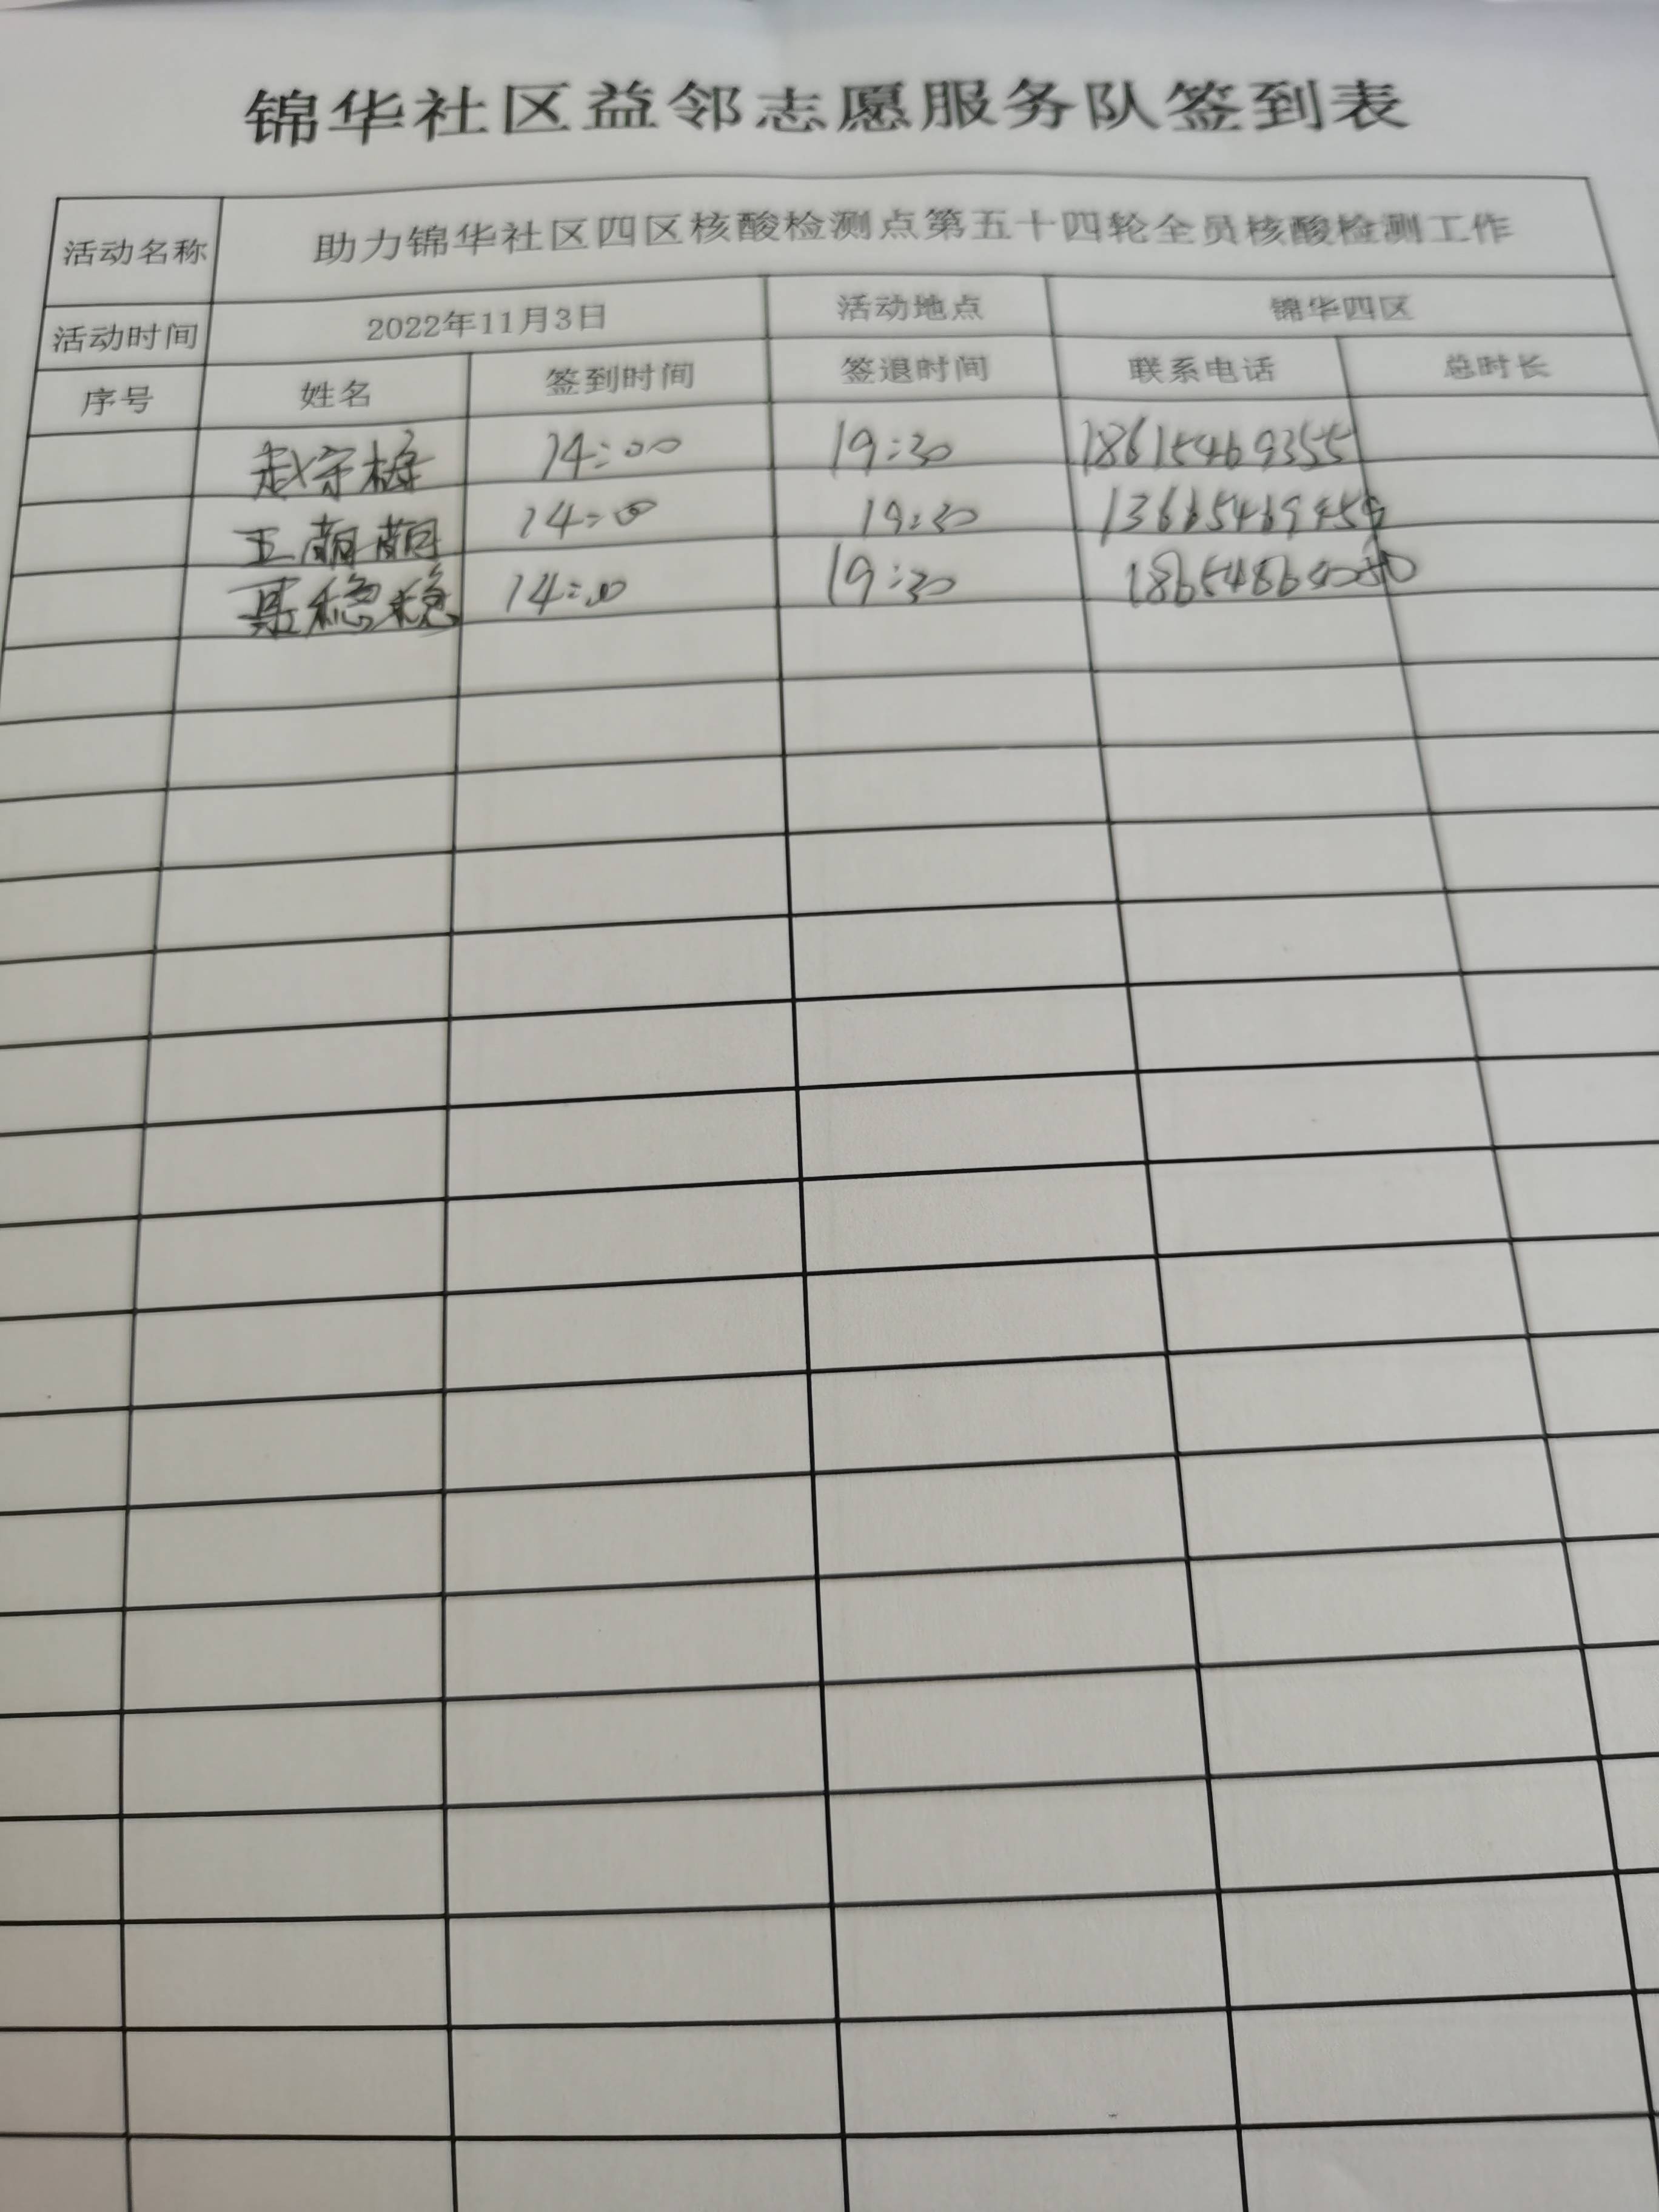 锦华社区益邻志愿服务队签到表
活动名称 助力锦华社区四区核酸检测点第五十四轮全员核酸检测工作
活动时间 2022年11月3日 活动地点 锦华四区
序号 姓名 签到时间 签退时间 联系电话 总时长
赵守梅 14:00 19:30 18615469355
王萌萌 14:00 19:30
聂稳稳 14:00 19:30